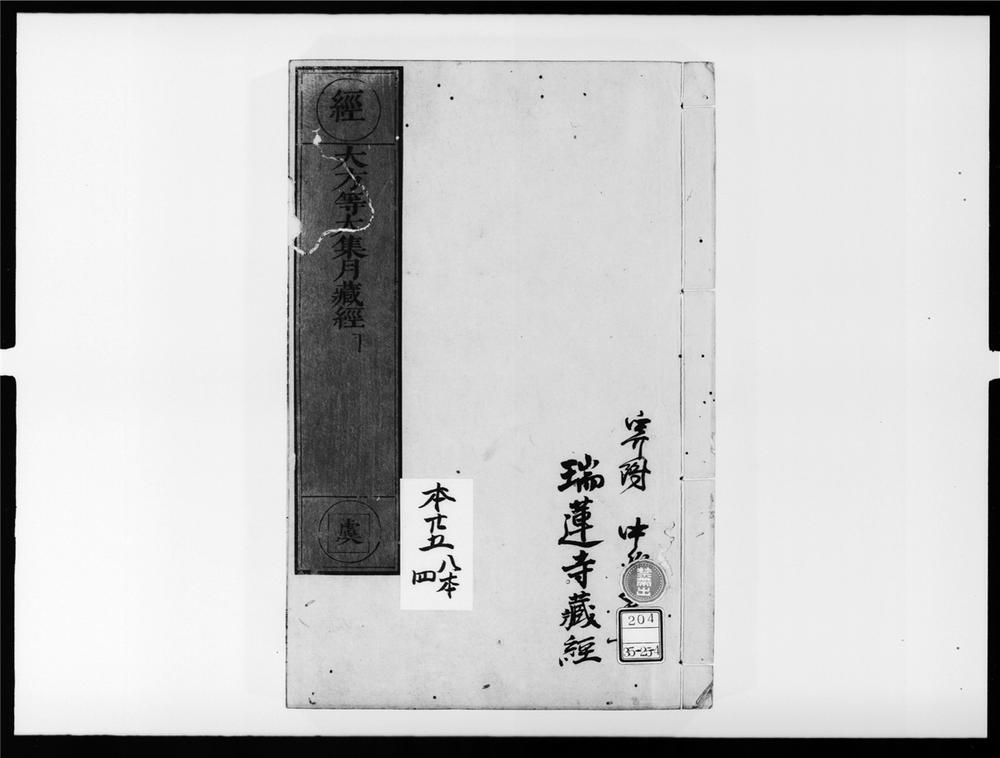 經
大方等大集月藏經
虞
本廿五
八本
四
寄附
瑞蓮寺藏經
禁帶出
204
35-25-4